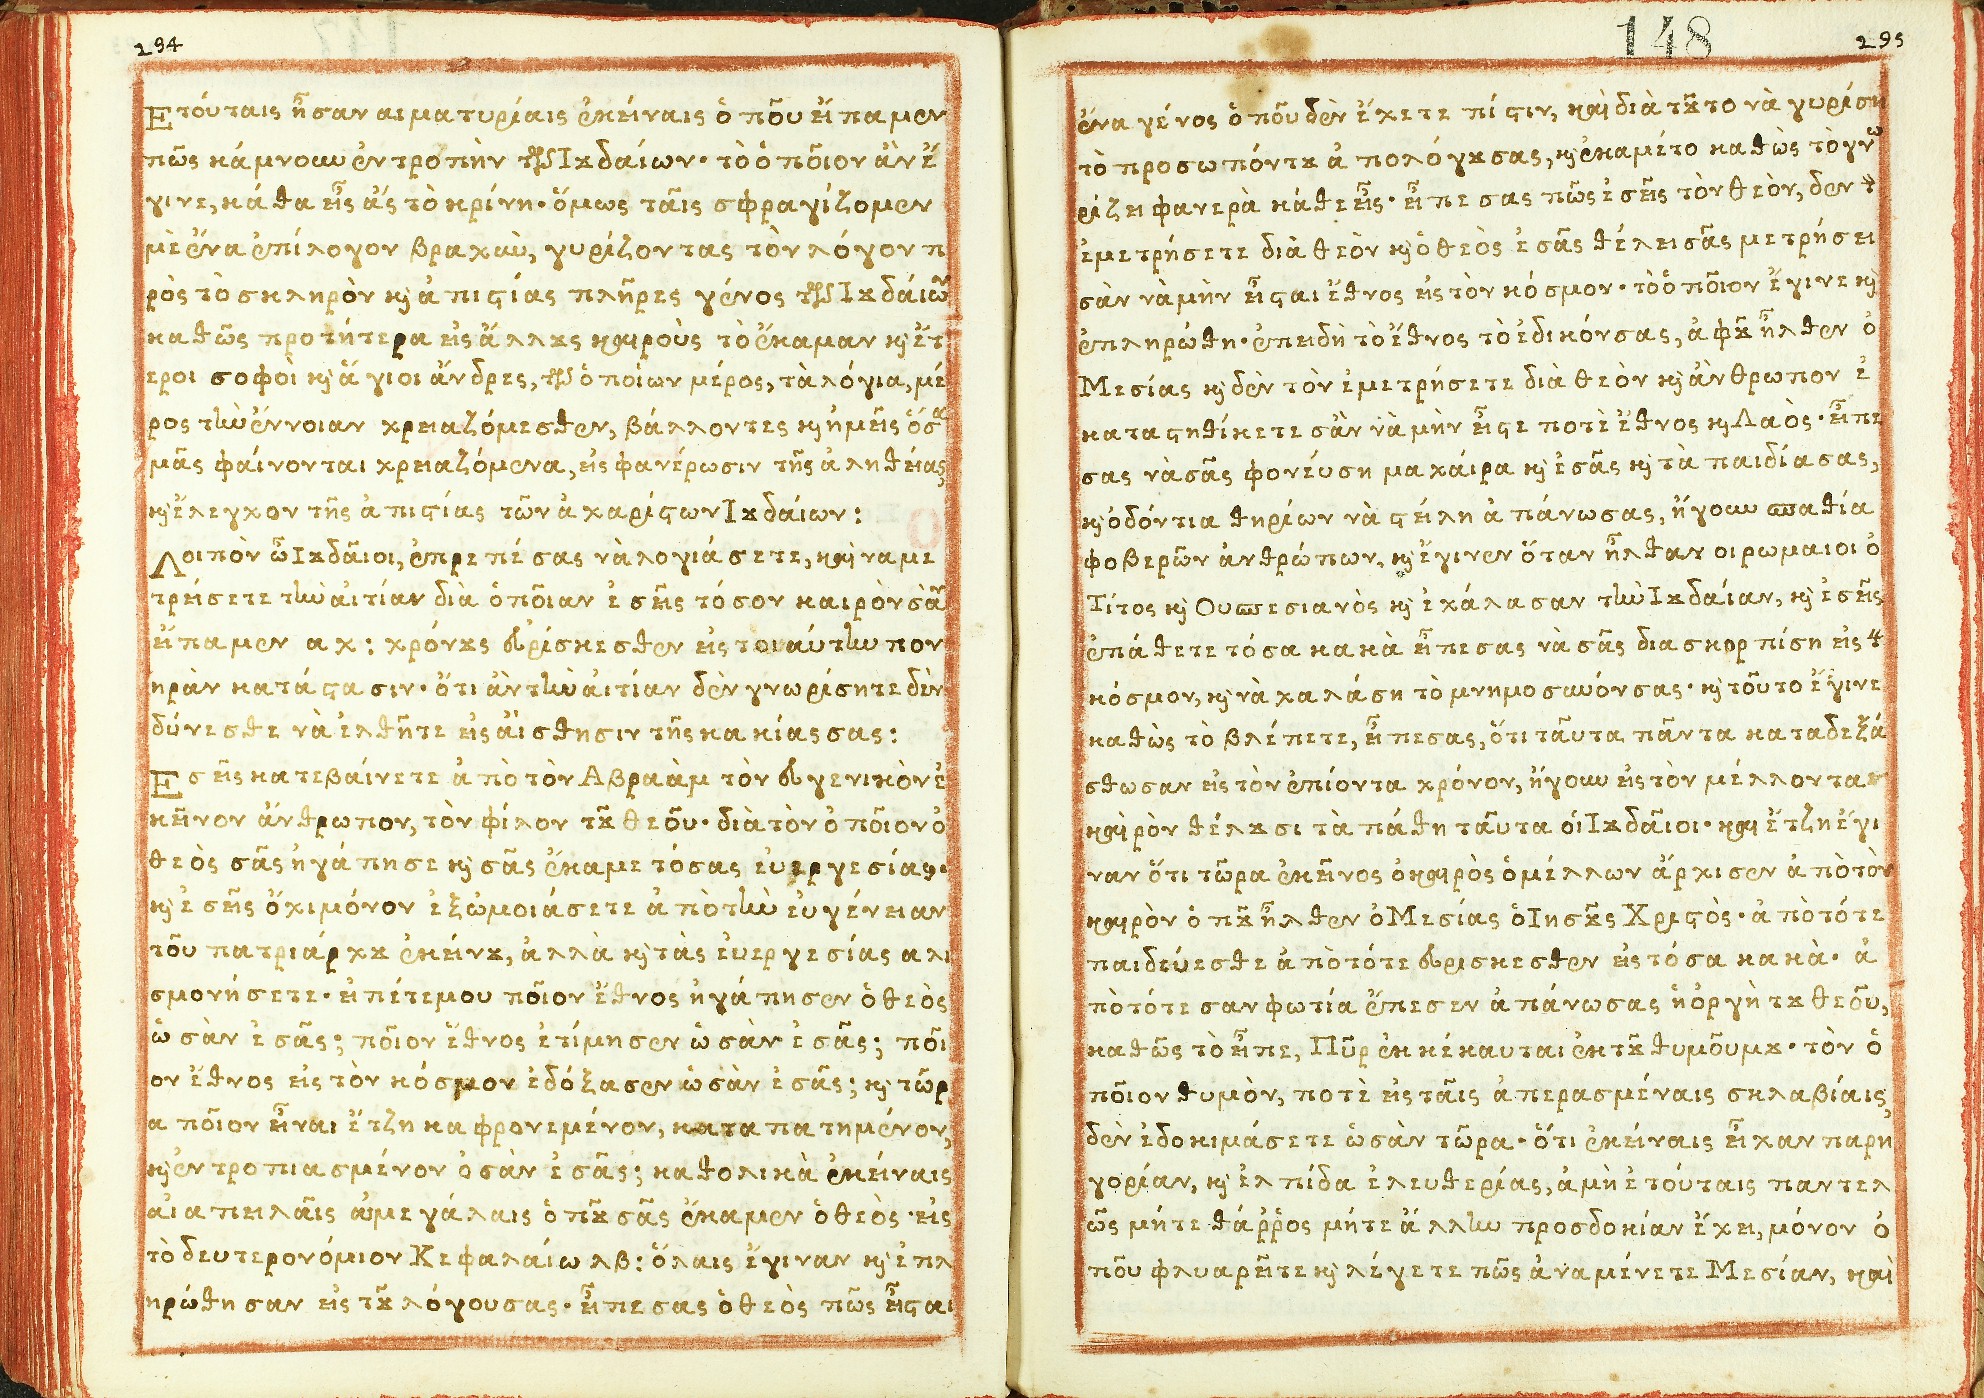 294
Ετόυταις ἦσαν αι ματυρίαις ἐκείναις ὁ ποῦ εἴπαμεν
πῶς κάμνουν ἐντροπὴν τῶν Ιȣδαίων· τὸ ὁποῖον ἂν ἔ
γινε, κάθα εἷς ἄς τὸ κρίνη· ὅμως ταῖς σφραγίζομεν
μὲ ἕνα ἐπίλογον βραχὺν, γυρίζοντας τὸν λόγον π
ρὸς τὸ σκληρὸν κ̀ ἀπιϛίας πλῆρες γένος τῶν Ιȣδάιων
καθῶς προτήτερα εἰς ἄλλȣς καιροὺς τὸ ἔκαμαν κ̀ ἕτ
εροι σοφοὶ κ̀ ἅγιοι ἄνδρες, τῶν ὁποίων μέρος, τὰ λόγια, μέ
ρος τὴν ἔννοιαν χρειαζόμεσθεν, βάλλοντες κ̀ ἡμεῖς ὅσα
μᾶς φαίνονται χρειαζόμενα, εἰς φανέρωσιν τῆς ἀληθείας
κ̀ ἔλεγχον τῆς ἀπιϛίας τῶν ἀχαρίϛων Ιȣδάιων:
Λοιπὸν ὦ Ιȣδαῖοι, ἔπρεπέ σας νὰ λογιάσετε, καὶ να με
τρείσετε τὴν ἀιτίαν διὰ ὁποῖαν ἐσεῖς τόσον καιρὸν σὰν
εἴπαμεν αχ: χρόνȣς εὑρίσκεσθεν εἰς τοιαύτην πον
ηρὰν κατάϛασιν· ὅτι ἂν τὴν ἀιτίαν δὲν γνωρίσητε δὲν
δύνεσθε νὰ ἐλθῆτε εἰς ἀίσθησιν τῆς κακίας σας:
Εσεῖς κατεβαίνετε ἀπὸ τὸν Αβραὰμ τὸν εὐγενικὸν ἐ
κεῖνον ἄνθρωπον, τὸν φίλον τȣ θεοῦ· διὰ τὸν ὁποῖον ὁ
θεὸς σᾶς ἠγάπησε κ̀ σᾶς ἔκαμε τόσας ἐυεργεσίας·
κ̀ ἐσεῖς ὄχι μόνον ἐξώμοιάσετε ἀπὸ τὴν ἐυγένειαν
τοῦ πατριάρχȣ ἐκείνȣ, ἀλλὰ κ̀ τὰς ἐυεργεσίας αλι
σμονήσετε· ἐιπέτε μου ποῖον ἔθνος ἠγάπησεν ὁ θεὸς
ὡσὰν ἐσᾶς; ποῖον ἔθνος ἐτίμησεν ὡσὰν ἐσᾶς; ποῖ
ον ἔθνος εἰς τὸν κόσμον ἐδόξασεν ὡσὰν ἐσᾶς; κ̀ τῶρ
α ποῖον εἶναι ἔτζη καφρονεμένον, καταπατημένον,
κ̀ ἐντροπιασμένον ὁσὰν ἐσᾶς; καθολικὰ ἐκείναις
ἁι απειλαῖς ἁι μεγάλαις ὁ πȣ σᾶς ἔκαμεν ὁ θεὸς· εἰς
τὸ δευτερονόμιον Κεφαλαίω λβ: ὅλαις ἔγιναν κ̀ ἐπλ
ηρώθησαν εἰς τȣ λόγουσας· εἶπε σας ὁ θεὸς πῶς εἶϛαι
148
295
ἕνα γένος ὁ ποῦ δὲν ἔχετε πίϛιν, καὶ διὰ τȣτο νὰ γυρίση
τὸ προσωπόντȣ ἀπολόγȣσας, κ̀ ἔκαμέτο καθὼς τὸ γνω
ρίζει φανερὰ κάθε εἷς· εἶπε σας πῶς ἐσεῖς τὸν θεὸν, δεν τὸν
ἐμετρήσετε διὰ θεὸν κ̀ ὁ θεὸς ἐσᾶς θέλει σᾶς μετρήσει
σὰν νὰ μὴν εἶϛαι ἔθνος εἰς τὸν κόσμον· τὸ ὁποῖον ἔγινε κ̀
ἐπληρώθη· ἐπειδὴ τὸ ἔθνος τὸ ἐδικόνσας, ἀφȣ ἦλθεν ὁ
Μεσίας κ̀ δὲν τὸν ἐμετρήσετε διὰ θεὸν κ̀ ἄνθρωπον ἐ
καταϛηθίκετε σὰν νὰ μὴν εἶϛε ποτὲ ἔθνος κ̀ Λαὸς· εἶπε
σας νὰ σᾶς φονέυση μαχάιρα κ̀ ἐσᾶς κ̀ τὰ παιδίασας,
κ̀ ὀδόντια θηρίων νὰ ϛείλη ἀπάνωσας, ἤγουν σπαθία
φοβερῶν ἀνθρώπων, κ̀ ἔγινεν ὅταν ἦλθαν οι ρωμαιοι ὁ
Τίτος κ̀ Ουεσπεσιανὸς κ̀ ἐχάλασαν τὴν Ιȣδαίαν, κ̀ ἐσεῖς
ἐπάθετε τόσα κακὰ εἶπε σας νὰ σᾶς διασκορπίση εἰς τὸν
κόσμον, κ̀ νὰ χαλάση τὸ μνημοσυνόνσας· κ̀ τοῦτο ἔγινε
καθὼς τὸ βλέπετε, εἶπεσας, ὅτι ταῦτα πάντα καταδεξά
σθωσαν εἰς τὸν ἐπίοντα χρόνον, ἤγουν εἰς τὸν μέλλοντα
καιρὸν θέλȣσι τὰ πάθη ταῦτα ὁι Ιȣδαῖοι· καὶ ἔτζη ἔγι
ναν ὅτι τῶρα ἐκεῖνος ὁ καιρὸς ὁ μέλλων ἄρχισεν ἀπὸ τὸν
καιρὸν ὁ πȣ ἦλθεν ὁ Μεσίας ὁ Ιησȣς Χριϛὸς· ἀπὸ τότε
παιδέυεσθε ἀπὸ τότε εὑρισκεσθεν εἰς τόσα κακὰ· ἀ
πὸ τότε σαν φωτία ἔπεσεν ἀπάνωσας ἡ ὀργὴ τȣ θεοῦ,
καθῶς τὸ εἶπε, Πῦρ ἐκκέκαυται ἐκ τȣ θυμοῦμȣ· τὸν ὁ
ποῖον θυμὸν, ποτὲ εἰς ταῖς ἀπερασμέναις σκλαβίαις,
δὲν ἐδοκιμάσετε ὡσὰν τῶρα· ὅτι ἐκείναις εἶχαν παρη
γορίαν, κ̀ ἐλπίδα ἐλευθερίας, ἀμὴ ἐτούταις παντελ
ῶς μήτε θάῤῥος μήτε ἄλλην προσδοκίαν ἔχει, μόνον ὁ
ποῦ φλυαρεῖτε κ̀ λέγετε πῶς ἀναμένετε Μεσίαν, καὶ